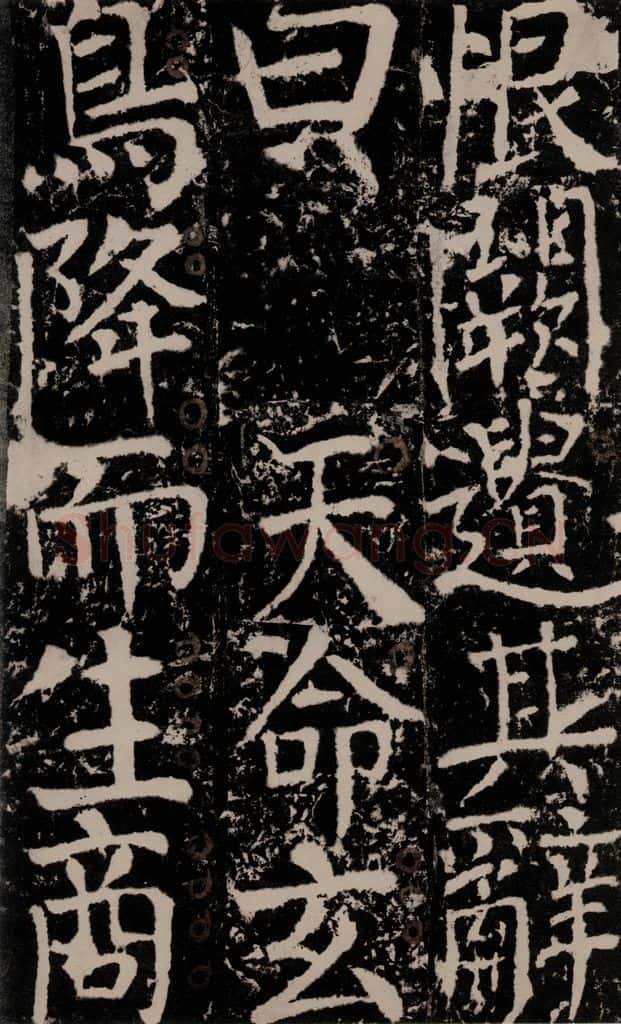 恨闕遺其辭
曰
天命玄
鳥降而生商
Shufawang.CN